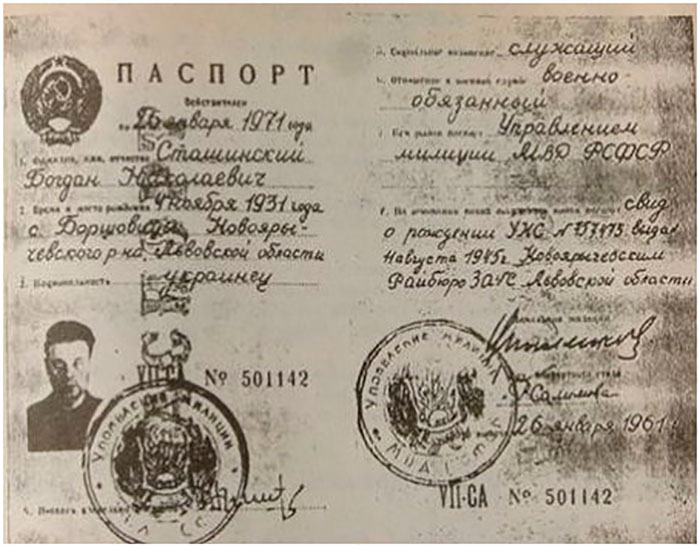 ПАСПОРТ
Действителен
по 26 января 1971 года
1. Фамилия, имя, отчество Сташинский
Богдан Николаевич
2. Время и место рождения 4 ноября 1931 года
с. Борщовицы, Новояры-
чевского р-на, Львовской области
3. Национальность украинец
VII-СА № 501142
УПРАВЛЕНИЕ МИЛИЦИИ
5. Социальное положение служащий
6. Отношение к военной службе военно-
обязанный
7. Кем выдан паспорт Управлением
милиции МВД РСФСР
свид.
о рождении УХС №757473 выдан
августа 1945г. Новоярычевским
Райбюро ЗАГС Львовской области
УПРАВЛЕНИЕ МИЛИЦИИ
26 января 1961 г.
VII-СА № 501142